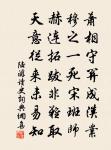 萧相守关成汉业
穆之一死宋班师
赫连拓跋非难取
天意从来未易知
陆游读史词典网春